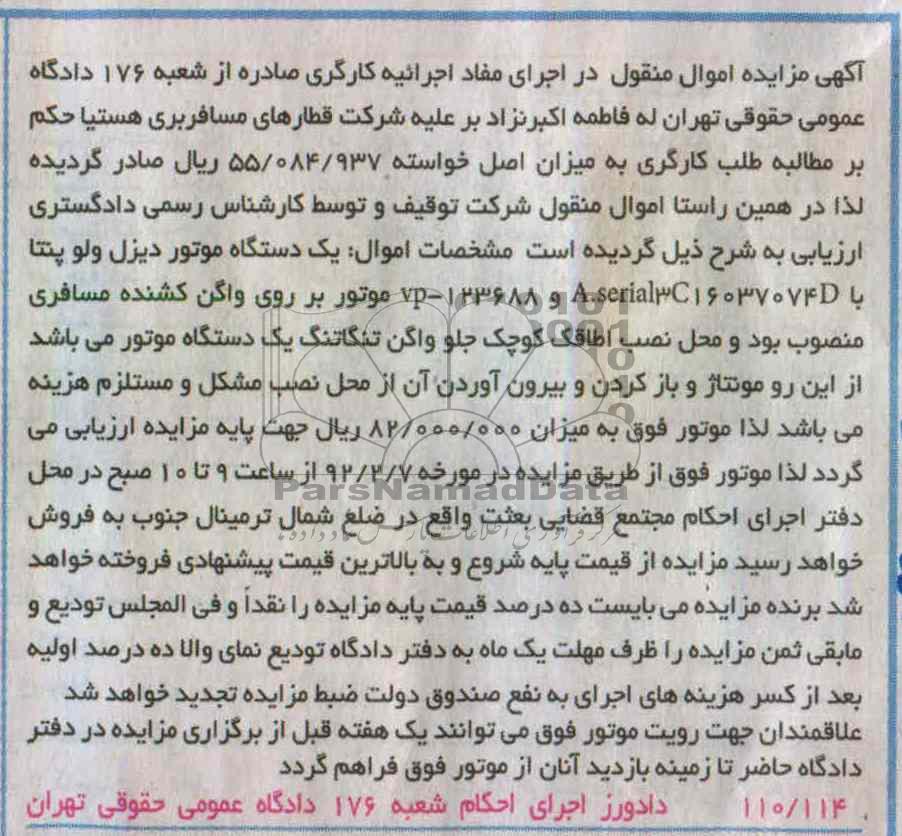 آگهی مزایده اموال منقول در اجرای مفاد اجرائیه کارگری صادره از شعبه ۱۷۶ دادگاه
عمومی حقوقی تهران له فاطمه اکبرنژاد بر علیه شرکت قطارهای مسافربری هستیا حکم
بر مطالبه طلب کارگری به میزان اصل خواسته ۵۵/۰۸۴/۹۳۷ ریال صادر گردیده
لذا در همین راستا اموال منقول شرکت توقیف و توسط کارشناس رسمی دادگستری
ارزیابی به شرح ذیل گردیده است مشخصات اموال: یک دستگاه موتور دیزل ولو پنتا
با A.serial۳C۱۶۰۳۷۰۷۴D و vp-۱۲۳۶۸۸ موتور بر روی واگن کشنده مسافری
منصوب بود و محل نصب اطاقک کوچک جلو واگن تنگاتنگ یک دستگاه موتور می باشد
از این رو مونتاژ و باز کردن و بیرون آوردن آن از محل نصب مشکل و مستلزم هزینه
می باشد لذا موتور فوق به میزان ۸۲/۰۰۰/۰۰۰ ریال جهت پایه مزایده ارزیابی می
گردد لذا موتور فوق از طریق مزایده در مورخه ۹۲/۲/۷ از ساعت ۹ تا ۱۰ صبح در محل
ParsNamadData
دفتر اجرای احکام مجتمع قضایی بعثت واقع در ضلع شمال ترمینال جنوب به فروش
خواهد رسید مزایده از قیمت پایه شروع و به بالاترین قیمت پیشنهادی فروخته خواهد
شد برنده مزایده می بایست ده درصد قیمت پایه مزایده را نقداً و فی المجلس تودیع و
مابقی ثمن مزایده را ظرف مهلت یک ماه به دفتر دادگاه تودیع نمای والا ده درصد اولیه
بعد از کسر هزینه های اجرای به نفع صندوق دولت ضبط مزایده تجدید خواهد شد
علاقمندان جهت رویت موتور فوق می توانند یک هفته قبل از برگزاری مزایده در دفتر
دادگاه حاضر تا زمینه بازدید آنان از موتور فوق فراهم گردد
۱۱۰/۱۱۴ دادورز اجرای احکام شعبه ۱۷۶ دادگاه عمومی حقوقی تهران